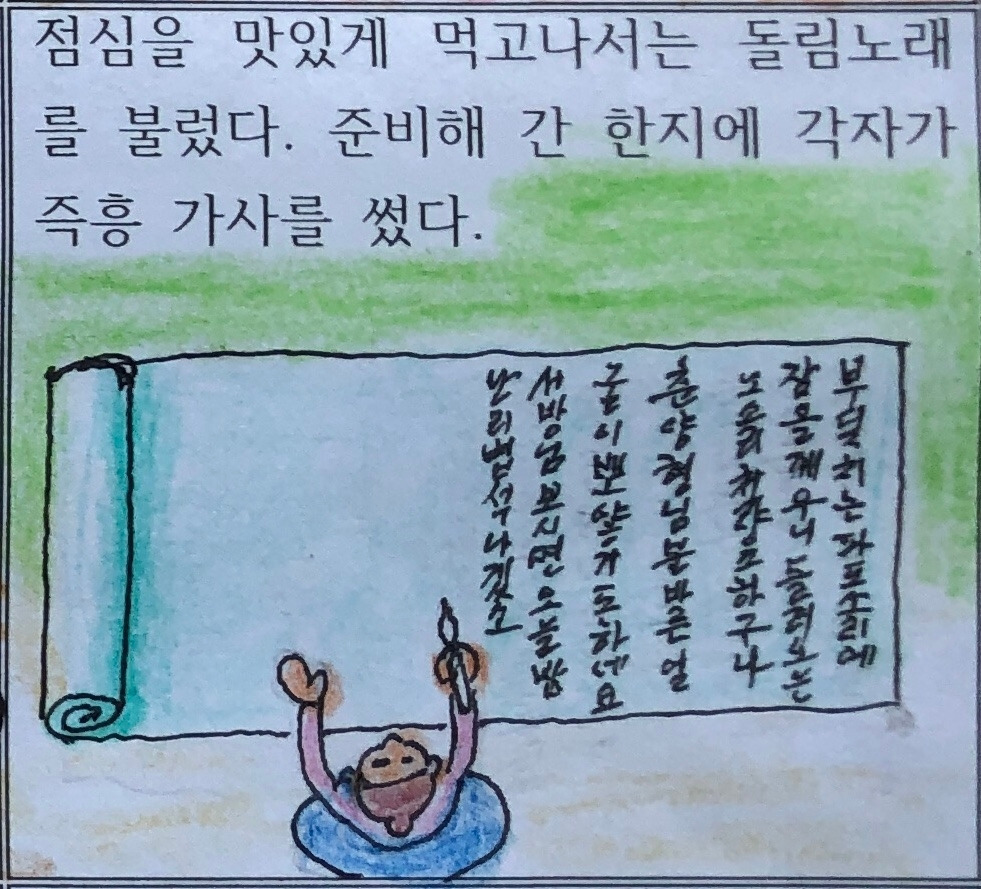 점심을 맛있게 먹고나서는 돌림노래
를 불렀다. 준비해 간 한지에 각자가
즉흥 가사를 썼다.
부딪치는파도소리에
잠을깨우니들려오는
노소리처량도하구나
춘양형님분바른얼
굴이뽀얗기도하네요
서방님보시면오늘밤
난리법석나겠소